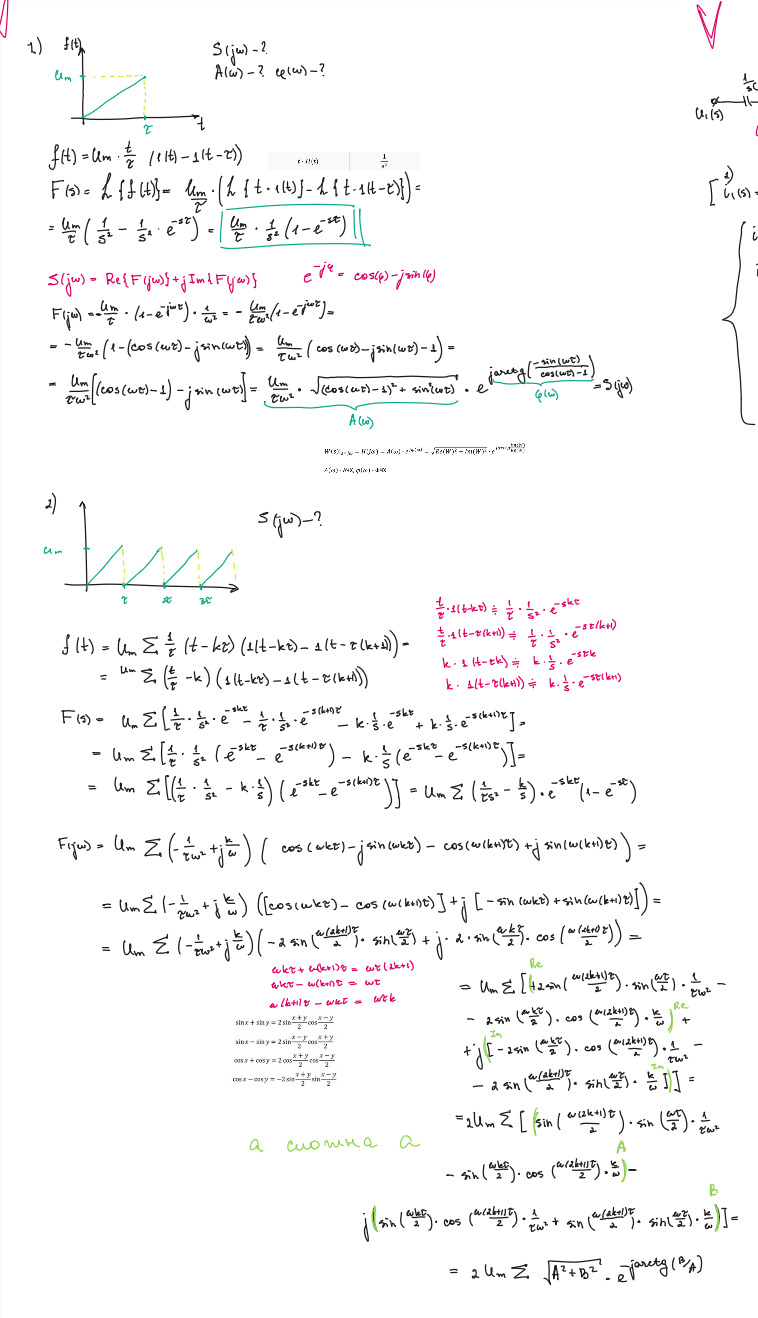 1)
f(t)
Um
τ
t
S(jω)-?
A(ω)-? φ(ω)-?
f(t) = Um · t/τ (1(t) - 1(t-τ))
F(s) = L{f(t)} = Um/τ · (L{t·1(t)} - L{t·1(t-τ)}) =
= Um/τ (1/s² - 1/s² · e^(-sτ)) = Um/τ · 1/s² (1 - e^(-sτ))
S(jω) = Re{F(jω)} + j Im{F(jω)} e^(-jφ) = cos(φ) - j sin(φ)
F(jω) = -Um/τ · (1 - e^(-jωτ)) · 1/ω² = - Um/(τω²) (1 - e^(-jωτ)) =
= - Um/(τω²) (1 - (cos(ωτ) - j sin(ωτ))) = Um/(τω²) (cos(ωτ) - j sin(ωτ) - 1) =
= Um/(τω²) [(cos(ωτ) - 1) - j sin(ωτ)] = Um/(τω²) · √((cos(ωτ) - 1)² + sin²(ωτ)) · e^(j arctg(-sin(ωτ)/(cos(ωτ) - 1))) = S(jω)
A(ω) φ(ω)
2)
Um
τ 2τ 3τ
S(jω) - ?
f(t) = Um Σ 1/τ (t - kτ) (1(t-kτ) - 1(t - τ(k+1))) =
= Um Σ (t/τ - k) (1(t-kτ) - 1(t - τ(k+1)))
t/τ · 1(t-kτ) ≑ 1/τ · 1/s² · e^(-skτ)
t/τ · 1(t-τ(k+1)) ≑ 1/τ · 1/s² · e^(-sτ(k+1))
k · 1(t-τk) ≑ k · 1/s · e^(-sτk)
k · 1(t-τ(k+1)) ≑ k · 1/s · e^(-sτ(k+1))
F(s) = Um Σ [1/τ · 1/s² · e^(-skτ) - 1/τ · 1/s² · e^(-s(k+1)τ) - k · 1/s · e^(-skτ) + k · 1/s · e^(-s(k+1)τ)] =
= Um Σ [1/τ · 1/s² (e^(-skτ) - e^(-s(k+1)τ)) - k · 1/s (e^(-skτ) - e^(-s(k+1)τ))] =
= Um Σ [(1/τ · 1/s² - k · 1/s) (e^(-skτ) - e^(-s(k+1)τ))] = Um Σ (1/(τs²) - k/s) · e^(-skτ) (1 - e^(-sτ))
F(jω) = Um Σ (-1/(τω²) + j k/ω) (cos(ωkτ) - j sin(ωkτ) - cos(ω(k+1)τ) + j sin(ω(k+1)τ)) =
= Um Σ (-1/(τω²) + j k/ω) ([cos(ωkτ) - cos(ω(k+1)τ)] + j [-sin(ωkτ) + sin(ω(k+1)τ)]) =
= Um Σ (-1/(τω²) + j k/ω) (-2 sin(ω(2k+1)τ/2) · sin(ωτ/2) + j · 2 · sin(ωkτ/2) · cos(ω(2k+1)τ/2)) =
ωkτ + ω(k+1)τ = ωτ(2k+1)
ωkτ - ω(k+1)τ = ωτ
ω(k+1)τ - ωkτ = ωτk
sin x + sin y = 2 sin (x+y)/2 cos (x-y)/2
sin x - sin y = 2 sin (x-y)/2 cos (x+y)/2
cos x + cos y = 2 cos (x+y)/2 cos (x-y)/2
cos x - cos y = -2 sin (x+y)/2 sin (x-y)/2
Re
= Um Σ [(+2 sin(ω(2k+1)τ/2) · sin(ωτ/2) · 1/(τω²) -
- 2 sin(ωkτ/2) · cos(ω(2k+1)τ/2) · k/ω) Re +
Im
+ j [-2 sin(ωkτ/2) · cos(ω(2k+1)τ/2) · 1/(τω²) -
- 2 sin(ω(2k+1)τ/2) · sin(ωτ/2) · k/ω]] Im =
= 2Um Σ [(sin(ω(2k+1)τ/2) · sin(ωτ/2) · 1/(τω²)
- sin(ωkτ/2) · cos(ω(2k+1)τ/2) · k/ω) A -
j (sin(ωkτ/2) · cos(ω(2k+1)τ/2) · 1/(τω²) + sin(ω(2k+1)τ/2) · sin(ωτ/2) · k/ω) B ] =
= 2 Um Σ √(A² + B²) · e^(-j arctg(B/A))